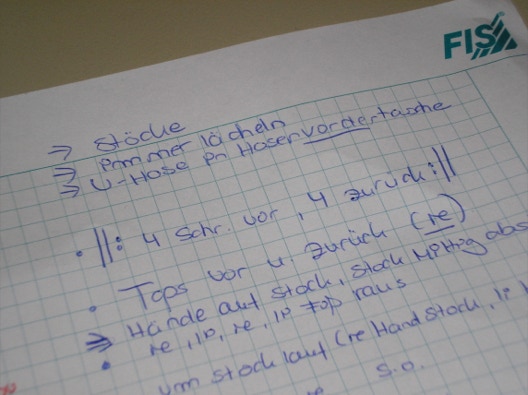 FIS
→ Stöcke
→ immer lächeln
→ U-Hose in Hosenvordertasche
• ||: 4 Schr. vor, 4 zurück :||
• Taps vor u. zurück (re)
⇒ Hände auf Stock, Stock
• re, li, re, li raus
um Stock lauf (re Hand Stock, li
s.o.